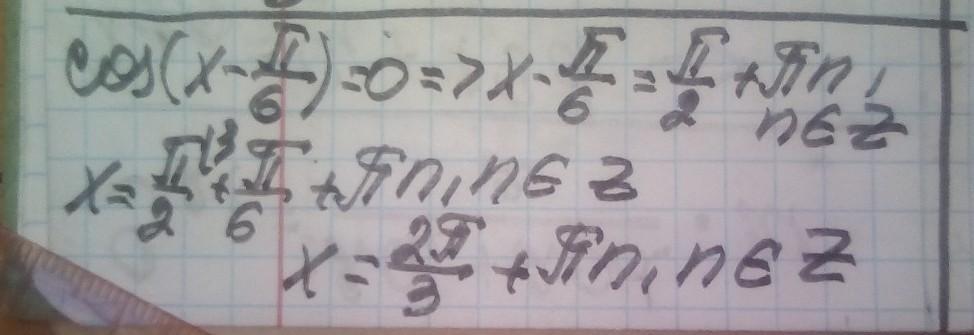 cos(x - π/6) = 0 => x - π/6 = π/2 + πn,
n ∈ Z
x = π/2 (3 + π/6 + πn, n ∈ Z
x = 2π/3 + πn, n ∈ Z